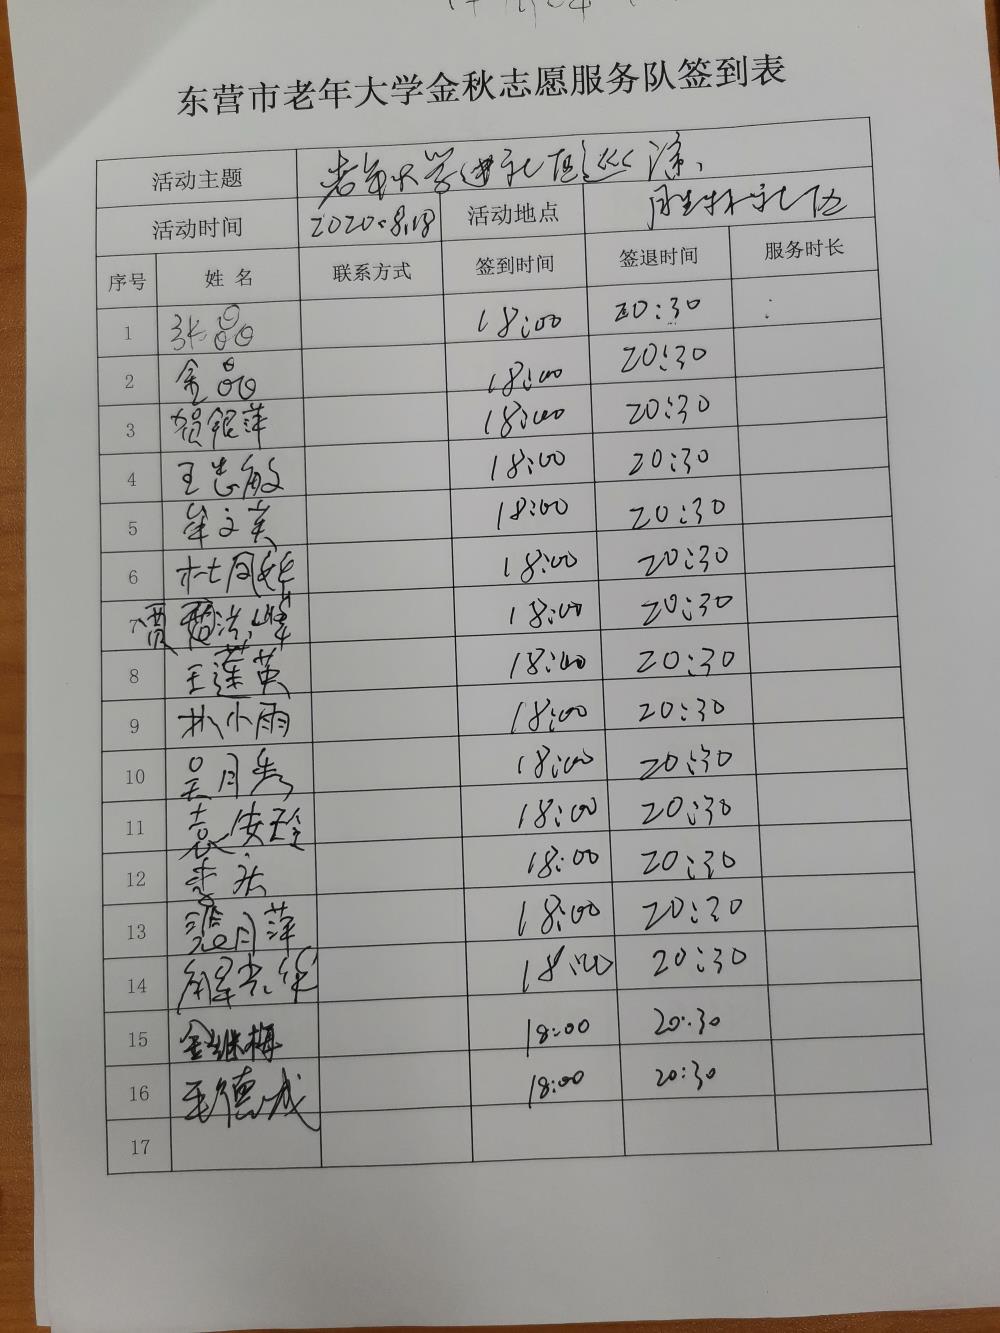 东营市老年大学金秋志愿服务队签到表
活动主题 老年大学进社区巡演
活动时间 2020.8.18 活动地点 胜林社区
序号 姓名 联系方式 签到时间 签退时间 服务时长
1 张晶 18:00 20:30
2 金晶 18:00 20:30
3 贺银萍 18:00 20:30
4 王志敏 18:00 20:30
5 牟文英 18:00 20:30
6 杜凤 18:00 20:30
7 贾洪峰 18:00 20:30
8 王莲英 18:00 20:30
9 小雨 18:00 20:30
10 吴月秀 18:00 20:30
11 袁安玲 18:00 20:30
12 李 18:00 20:30
13 月萍 18:00 20:30
14 解 18:00 20:30
15 金继梅 18:00 20:30
16 王德成 18:00 20:30
17